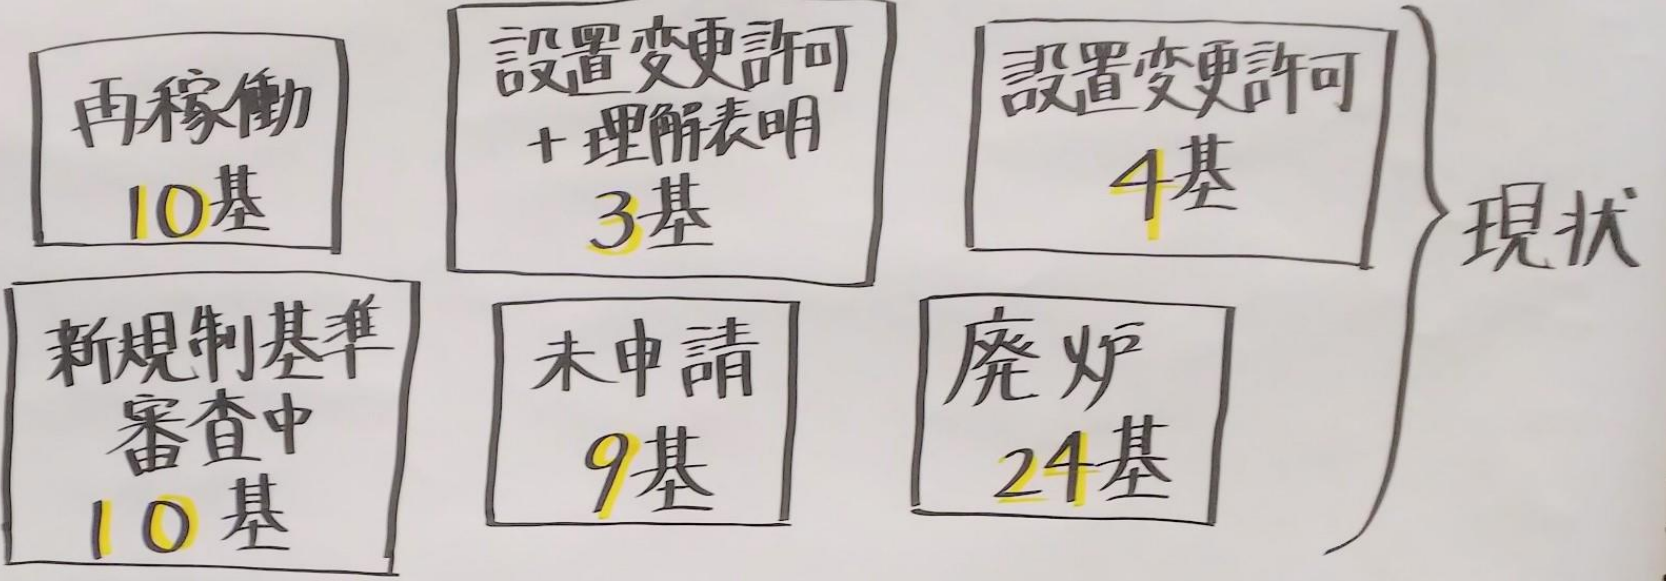 再稼働
10基
設置変更許可
+理解表明
3基
設置変更許可
4基
新規制基準
審査中
10基
未申請
9基
廃炉
24基
現状